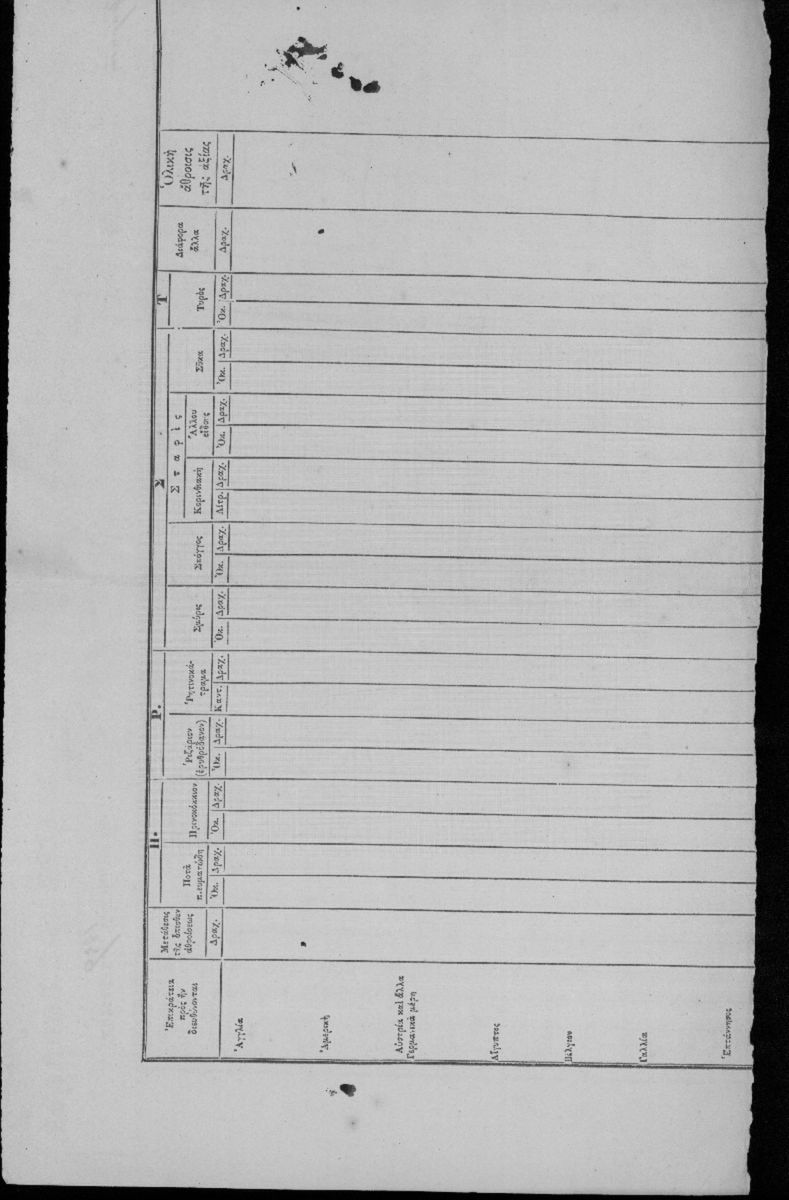 Ἐπικράτεια
πρὸς ἣν
διευθύνονται
Μετάθεσις
τῆς ὄπισθεν
ἀθροίσεως
Δραχ.
Π.
Ποτὰ
πνευματώδη
Ὀκ. Δραχ.
Πρινοκόκκιον
Ὀκ. Δραχ.
Ρ.
Ῥιζάριον
(ἐρυθρόδανον)
Ὀκ. Δραχ.
Ῥητινοκά-
τραμα
Καντ. Δραχ.
Σ
Σμύρις
Ὀκ. Δραχ.
Σπόγγος
Ὀκ. Δραχ.
Σταφὶς
Κορινθιακὴ
Λίτρ. Δραχ.
Ἄλλου
εἴδους
Ὀκ. Δραχ.
Σῦκα
Ὀκ. Δραχ.
Τ
Τυρὸς
Ὀκ. Δραχ.
Διάφορα
ἄλλα
Δραχ.
Ὁλικὴ
ἄθροισις
τῆς ἀξίας
Δραχ.
Ἀγγλία
Ἀμερικὴ
Αὐστρία καὶ ἄλλα
Γερμανικὰ μέρη
Αἴγυπτος
Βέλγιον
Γαλλία
Ἑπτάννησος